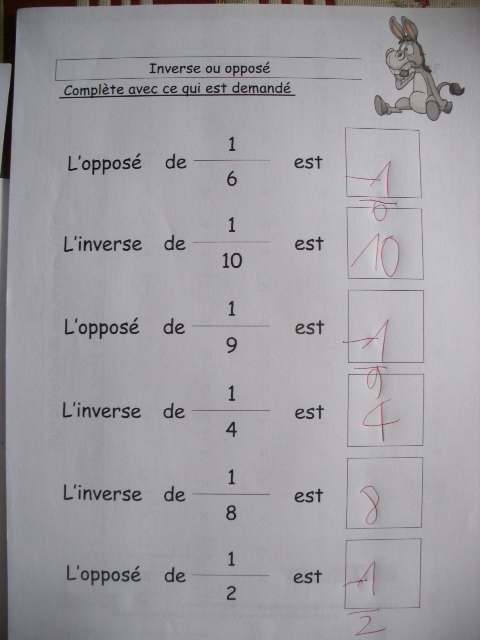 Inverse ou opposé
Complète avec ce qui est demandé
L'opposé de 1/6 est -1/6
L'inverse de 1/10 est 10
L'opposé de 1/9 est -1/9
L'inverse de 1/4 est 4
L'inverse de 1/8 est 8
L'opposé de 1/2 est -1/2